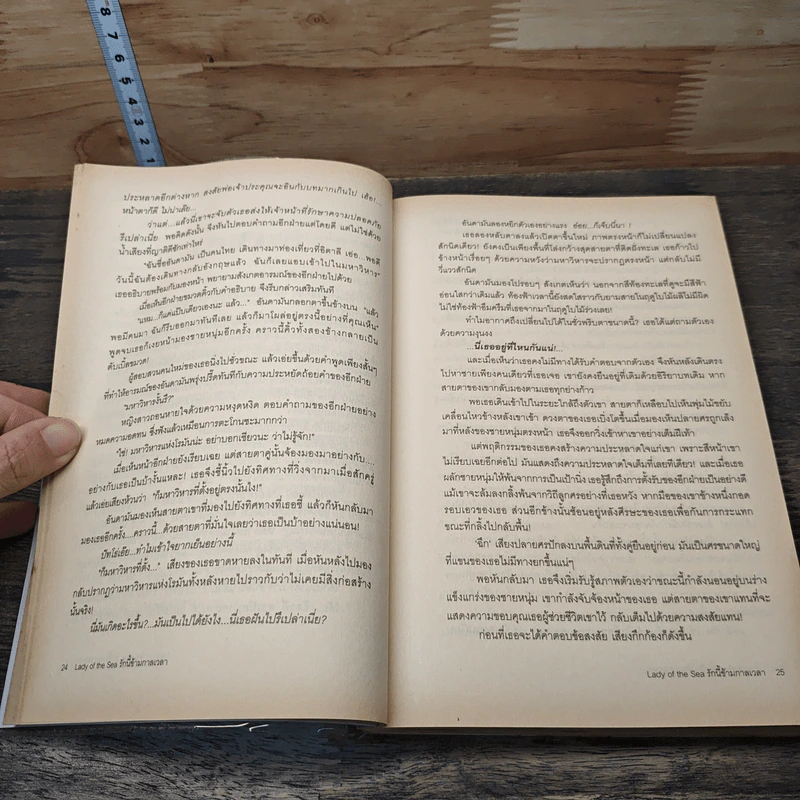 8
7
6
5
4
3
2
1
ประหลาดอีกต่างหาก สงสัยพ่อเจ้าประคุณจะอินกับบทมากเกินไป เฮ้อ!...
หน้าตาก็ดี ไม่น่าเล้ย...
ว่าแต่...แล้วนี่เขาจะจับตัวเธอส่งให้เจ้าหน้าที่รักษาความปลอดภัย
รึเปล่าเนี่ย พอคิดดังนั้น จึงหันไปตอบคำถามอีกฝ่ายแต่โดยดี แต่ไม่ใช่ด้วย
น้ำเสียงที่ญาติดีซักเท่าไหร่
"ฉันชื่ออันดามัน เป็นคนไทย เดินทางมาท่องเที่ยวที่อิตาลี เอ่อ...พอดี
วันนี้ฉันต้องเดินทางกลับอังกฤษแล้ว ฉันก็เลยแอบเข้าไปในมหาวิหาร"
เธออธิบายพร้อมกับมองหน้า พยายามสังเกตอารมณ์ของอีกฝ่ายไปด้วย
เมื่อเห็นอีกฝ่ายขมวดคิ้วกับคำอธิบาย จึงรีบกล่าวเสริมทันที
"แหม...ก็แค่แป๊บเดียวเองนะ แล้ว..." อันดามันกลอกตาขึ้นข้างบน "แล้ว
พอมีคนมา ฉันก็รีบออกมาทันทีเลย แล้วก็มาโผล่อยู่ตรงนี้อย่างที่คุณเห็น"
พูดจบเธอก็เงยหน้ามองชายหนุ่มอีกครั้ง คราวนี้คิ้วทั้งสองข้างกลายเป็น
ดับเบิ้ลขมวด!
ผู้สอบสวนคนใหม่ของเธอนิ่งไปชั่วขณะ แล้วเอ่ยขึ้นด้วยคำพูดเพียงสั้นๆ
ที่ทำให้อารมณ์ของอันดามันพรุ่งปรี๊ดทันทีกับความประหยัดถ้อยคำของอีกฝ่าย
"มหาวิหารงั้นรึ?"
หญิงสาวถอนหายใจด้วยความหงุดหงิด ตอบคำถามของอีกฝ่ายอย่าง
หมดความอดทน ซึ่งฟังแล้วเหมือนการตะโกนซะมากกว่า
"ใช่! มหาวิหารแห่งโรมันน่ะ อย่าบอกเชียวนะ ว่าไม่รู้จัก!"
เมื่อเห็นหน้าอีกฝ่ายยังเรียบเฉย แต่สายตาคู่นั้นจ้องมองมาอย่างกับ....
อย่างกับเธอเป็นบ้างั้นแหละ! เธอจึงชี้นิ้วไปยังทิศทางที่วิ่งจากมาเมื่อสักครู่
แล้วเอ่ยเสียงห้วนว่า "ก็มหาวิหารที่ตั้งอยู่ตรงนั้นไง!"
อันดามันมองเห็นสายตาเขาที่มองไปยังทิศทางที่เธอชี้ แล้วก็หันกลับมา
มองเธออีกครั้ง...คราวนี้...ด้วยสายตาที่มั่นใจเลยว่าเธอเป็นบ้าอย่างแน่นอน!
บ๊ะโธ่เอ้ย...ทำไมเข้าใจยากเย็นอย่างนี้
"ก็มหาวิหารที่ตั้ง..." เสียงของเธอขาดหายลงในทันที เมื่อหันหลังไปมอง
กลับปรากฏว่ามหาวิหารแห่งโรมันทั้งหลังหายไปราวกับว่าไม่เคยมีสิ่งก่อสร้าง
นั้นจริง!
นี่มันเกิดอะไรขึ้น?...มันเป็นไปได้ยังไง...นี่เธอฝันไปรึเปล่าเนี่ย?
24 Lady of the Sea รักนี้ข้ามกาลเวลา
อันดามันลองหยิกตัวเองอย่างแรง อ๋อย...ก็เจ็บนี่นา !
เธอลองหลับตาลงแล้วเปิดตาขึ้นใหม่ ภาพตรงหน้าก็ไม่เปลี่ยนแปลง
สักนิดเดียว! ยังคงเป็นเพียงพื้นที่โล่งกว้างสุดสายตาที่ติดฝั่งทะเล เธอก้าวไป
ข้างหน้าเรื่อยๆ ด้วยความหวังว่ามหาวิหารจะปรากฏตรงหน้า แต่กลับไม่มี
วี่แววสักนิด
อันดามันมองไปรอบๆ สังเกตเห็นว่า นอกจากสีท้องทะเลที่ดูจะมีสีฟ้า
อ่อนใสกว่าเดิมแล้ว ท้องฟ้าเวลานี้ยังสดใสราวกับยามสายในฤดูใบไม้ผลิไม่มีผิด
ไม่ใช่ท้องฟ้าอึมครึมที่เธอจากมาในฤดูใบไม้ร่วงเลย!
ทำไมอากาศถึงเปลี่ยนไปได้ในชั่วพริบตาขนาดนี้? เธอได้แต่ถามตัวเอง
ด้วยความงุนงง
...นี่เธออยู่ที่ไหนกันแน่!...
และเมื่อเห็นว่าเธอคงไม่มีทางได้รับคำตอบจากตัวเอง จึงหันหลังเดินตรง
ไปหาชายเพียงคนเดียวที่เธอเจอ เขายังคงยืนอยู่ที่เดิมด้วยอิริยาบถเดิม หาก
สายตาของเขากลับมองตามเธอทุกย่างก้าว
พอเธอเดินเข้าไปในระยะใกล้ถึงตัวเขา สายตาก็เหลือบไปเห็นพุ่มไม้ขยับ
เคลื่อนไหวข้างหลังเขาเข้า ดวงตาของเธอเบิ่งโตขึ้นเมื่อมองเห็นปลายศรถูกเล็ง
มาที่หลังของชายหนุ่มตรงหน้า เธอจึงออกวิ่งเข้าหาเขาอย่างเต็มฝีเท้า
แต่พฤติกรรมของเธอคงสร้างความประหลาดใจแก่เขา เพราะสีหน้าเขา
ไม่เรียบเฉยอีกต่อไป มันแสดงถึงความประหลาดใจเต็มที่เลยทีเดียว! และเมื่อเธอ
ผลักชายหนุ่มให้พ้นจากการเป็นเป้านิ่ง เธอรู้สึกถึงการตั้งรับของอีกฝ่ายเป็นอย่างดี
แม้เขาจะล้มลงกลิ้งพ้นจากวิถีลูกศรอย่างที่เธอหวัง หากมือของเขาข้างหนึ่งกอด
รอบเอวของเธอ ส่วนอีกข้างนั้นซ้อนอยู่หลังศีรษะของเธอเพื่อกันการกระแทก
ขณะที่กลิ้งไปกลับพื้น!
'ฉึก' เสียงปลายศรปักลงบนพื้นดินที่ทั้งคู่ยืนอยู่ก่อน มันเป็นศรขนาดใหญ่
ที่แขนของเธอไม่มีทางยกขึ้นแน่ๆ
พอหันกลับมา เธอจึงเริ่มรับรู้สภาพตัวเองว่าขณะนี้กำลังนอนอยู่บนร่าง
แข็งแกร่งของชายหนุ่ม เขากำลังจับจ้องหน้าของเธอ แต่สายตาของเขาแทนที่จะ
แสดงความขอบคุณเธอผู้ช่วยชีวิตเขาไว้ กลับเต็มไปด้วยความสงสัยแทน!
ก่อนที่เธอจะได้คำตอบข้อสงสัย เสียงกึกก้องก็ดังขึ้น
Lady of the Sea รักนี้ข้ามกาลเวลา 25